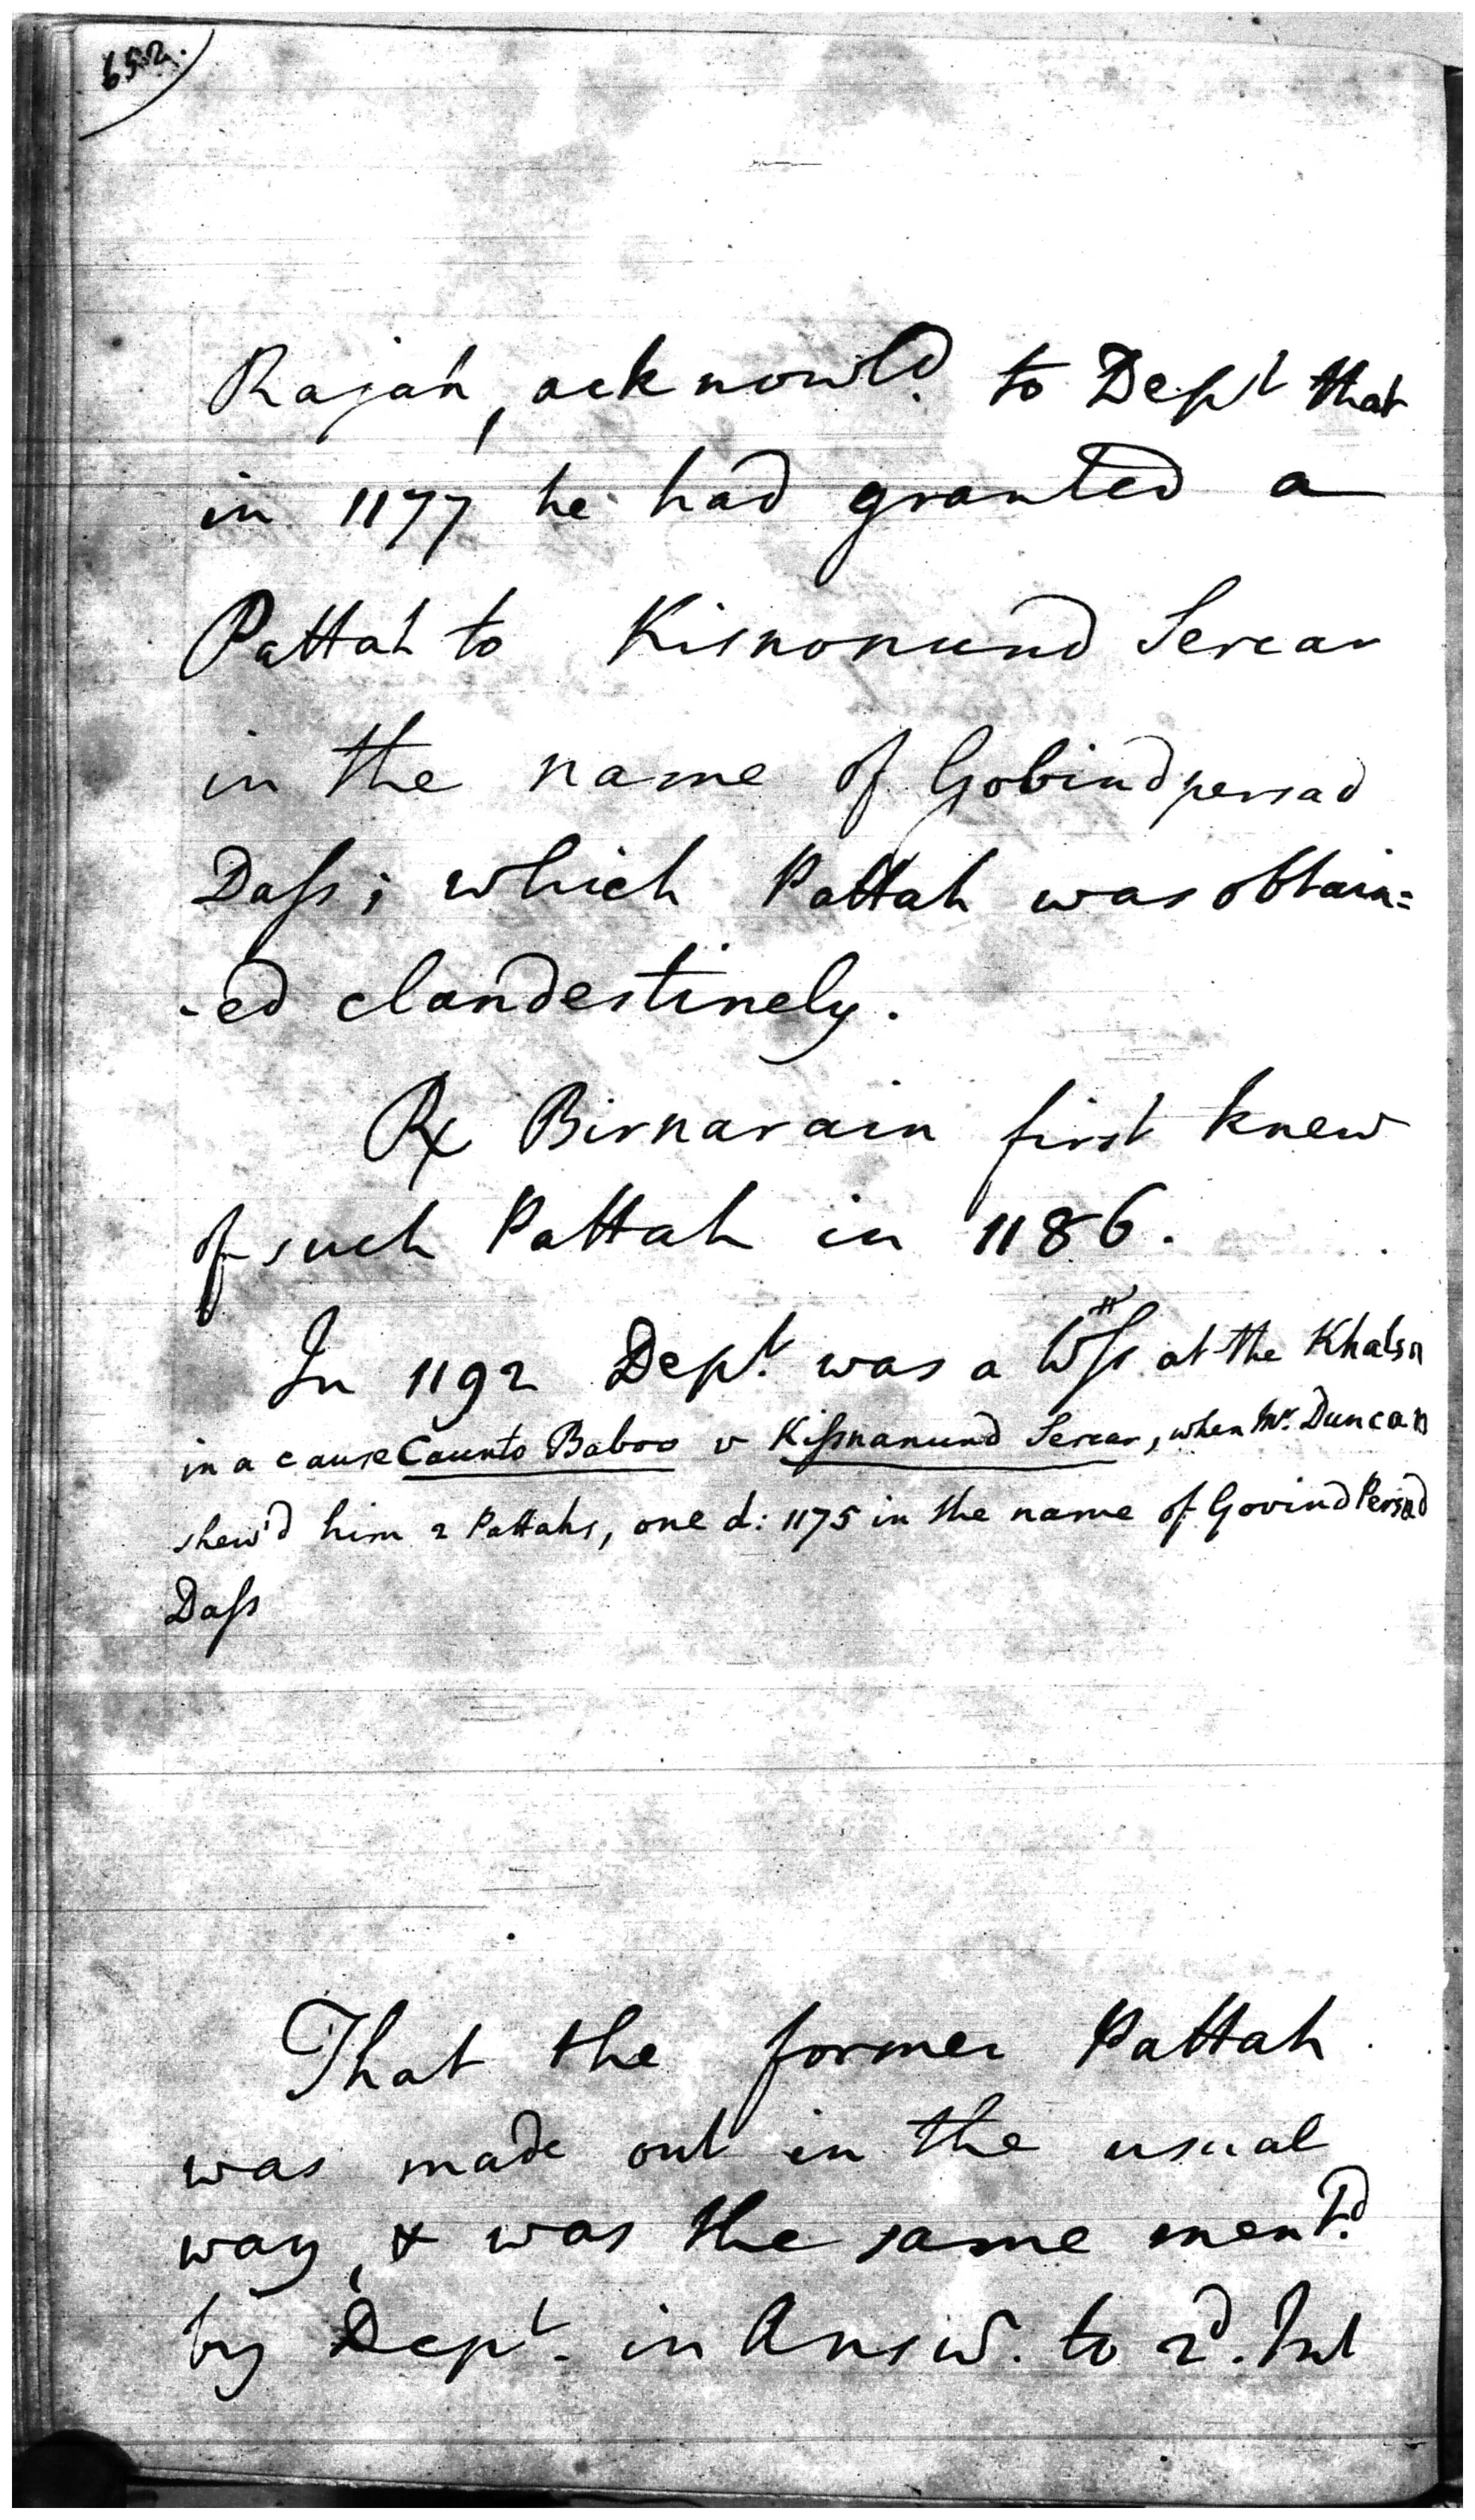 652.
Rajah, acknowld. to Dept that
in 1177 he had granted a
Pattah to Kisnonund Sercar
in the name of Gobindpersad
Daſs; which Pattah was obtain=
-ed clandestinely.
Rx Birnarain first knew
of such Pattah in 1186.
In 1192 Dept. was a Wſs at the Khalsa
in a cause Caunto Baboo v Kiſsnanund Sercar, when Mr. Duncan
shew'd him 2 Pattahs, one d: 1175 in the name of Govind Persad
Daſs
That the former Pattah
was made out in the usual
way, & was the same ment.d
by Dept. in Answ. to 2d. Int